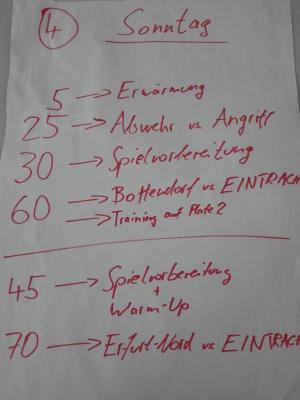 4 Sonntag
5 → Erwärmung
25 → Abwehr vs. Angriff
30 → Spielvorbereitung
60 → Bottendorf vs EINTRACH
→ Training auf Platz 2
45 → Spielvorbereitung
+
Warm-Up
70 → Erfurt-Nord vs EINTRACH